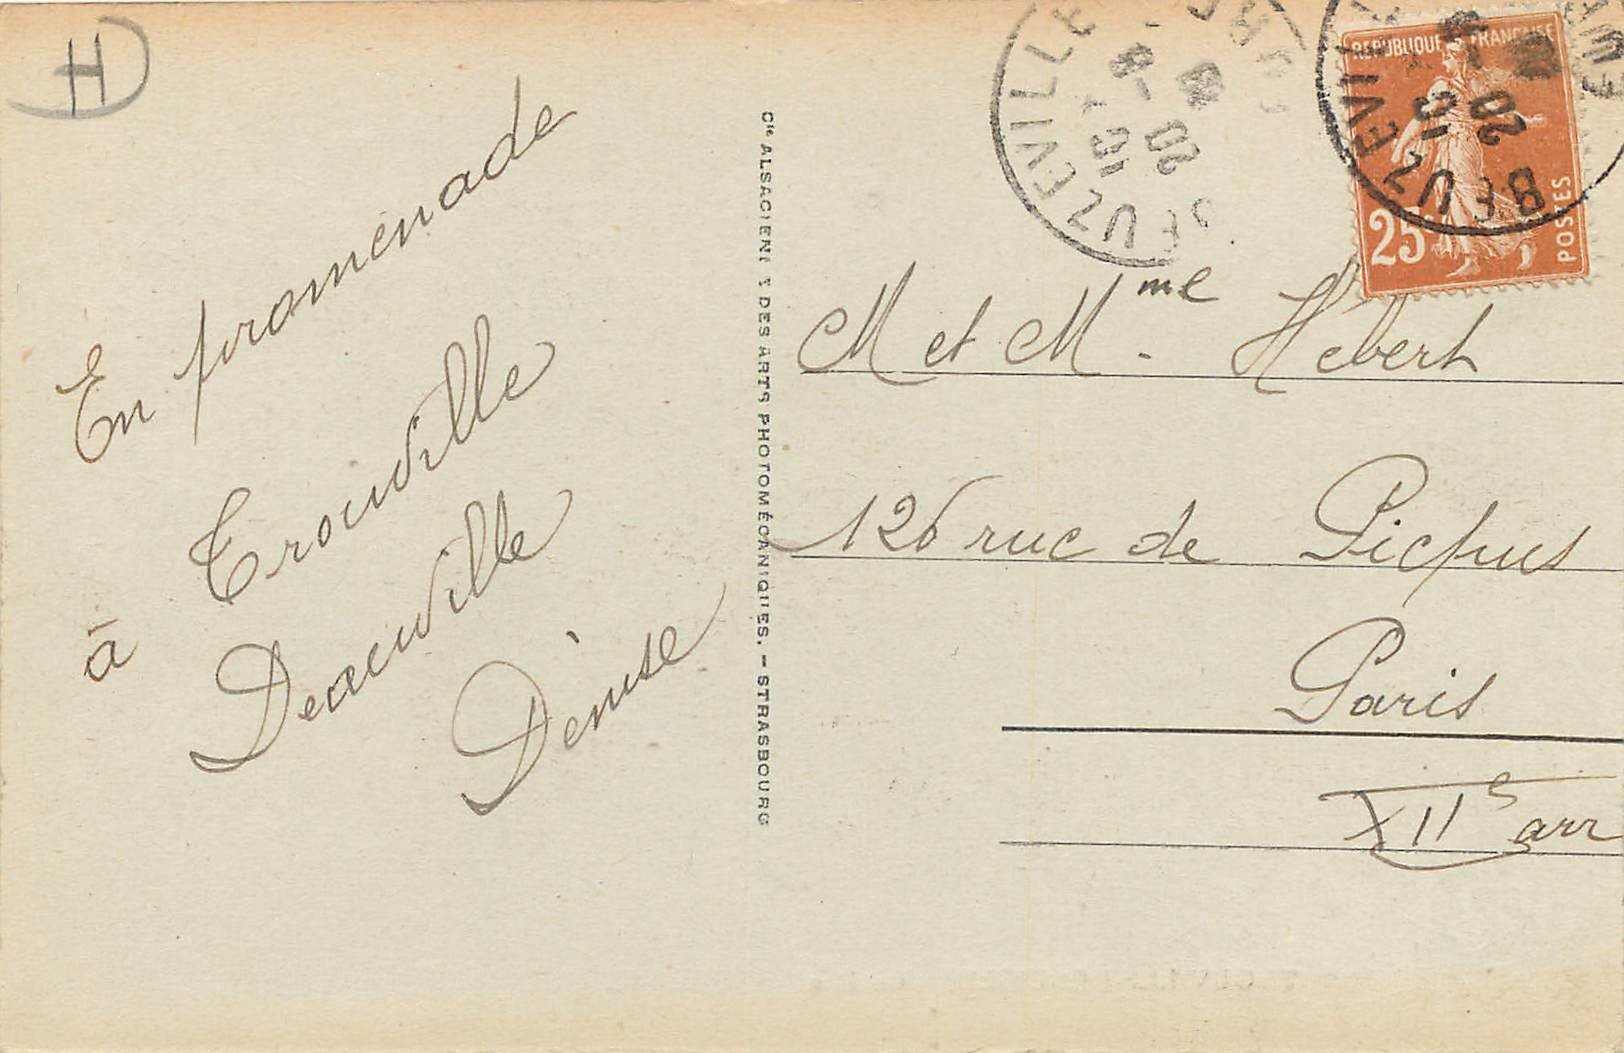 H
En promenade
à Trouville
Deauville
Denise
Cie ALSACIENNE DES ARTS PHOTOMÉCANIQUES. - STRASBOURG
BEUZEVILLE
20
BEUZEVILLE
20
REPUBLIQUE FRANÇAISE
25
POSTES
M et Mme. Hébert
126 rue de Picpus
Paris
XIIe arr